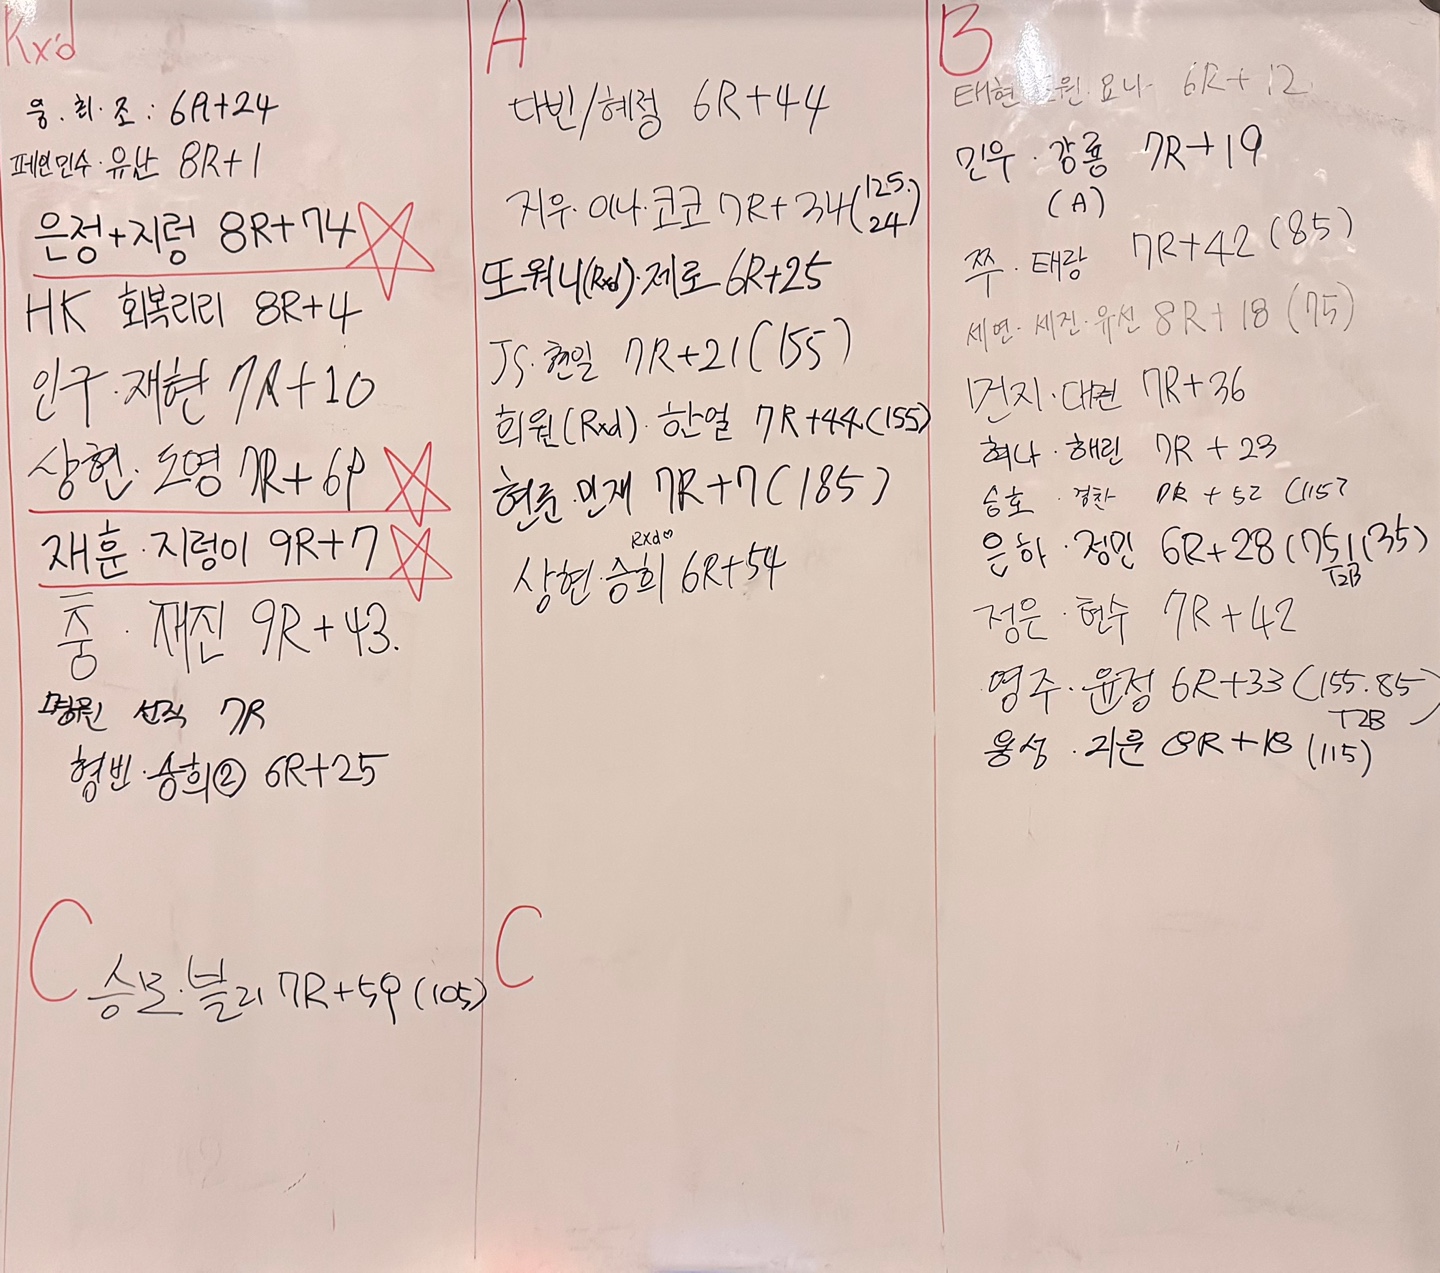 Rx'd
웅.희.조: 6R+24
페연민수.유난 8R+1
은정+지렁 8R+74
HK 회복리리 8R+4
인구.재현 7R+10
상현.도영 7R+69
재훈.지렁이 9R+7
쭝.재진 9R+43.
명원 선직 7R
형빈.승희② 6R+25
C
승모.블리 7R+59 (105)
A
다빈/혜정 6R+44
지우.이나.코코 7R+34(125.24)
또워니(Rxd).제로 6R+25
JS.현일 7R+21(155)
희원(Rxd).한열 7R+44(155)
현준.민재 7R+7(185)
Rxd♡
상현.승희 6R+54
C
B
태현 도원.요나 6R+12
민우.강룡 7R+19
(A)
쭈.태랑 7R+42(85)
세연.세진.유선 8R+18(75)
먼지.대권 7R+36
혀나.해린 7R+23
승호.경찬 7R+52 (115)
은하.정민 6R+28(75)(35)
T2B
정은.현수 7R+42
영주.윤정 6R+33(155.85)
T2B
웅성.지운 8R+18 (115)